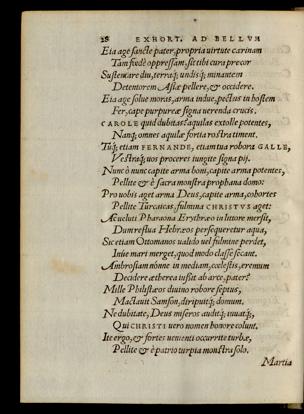 28 EXHORT. AD BELLVM
Eia age sancte pater, propria virtute carinam
Tam fœdè oppressam, sit tibi cura precor
Sustentare diu, terraq; undisq; minantem
Detentorem Asiæ pellere, & occidere.
Eia age solue moras, arma indue, pectus in hostem
Fer, cape purpureæ signa verenda crucis.
CAROLE quid dubitas? aquilas extolle potentes,
Nanq; omnes aquilæ fortia rostra timent.
Tuq; etiam FERNANDE, etiam tua robora GALLE,
Vestraq; uos proceres iungite signa pij.
Nunc ô nunc capite arma boni, capite arma potentes,
Pellite & è sacra monstra prophana domo:
Pro uobis aget arma Deus, capite arma, cohortes
Pellite Turcaicas, fulmina CHRISTVS aget:
Ac ueluti Pharaona Erythræo in littore mersit,
Dum restlus Hebræos persequeretur aqua,
Sic etiam Ottomanos ualido uel fulmine perdet,
Inue mari merget, quod modo classe secant.
Ambrosiam nónne in mediam, cœlestis, eremum
Decidere ætherea iussit ab arce, pater?
Mille Philistæos diuino robore septus,
Mactauit Samson, diripuitq; domum.
Ne dubitate, Deus miseros auditq; iuuatq;,
Qui CHRISTI uero nomen honore colunt.
Ite ergo, & fortes uenienti occurrite turbæ,
Pellite & è patrio turpia monstra solo.
Martia